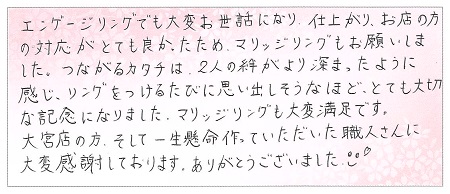 エンゲージリングでも大変お世話になり、仕上がり、お店の方
の対応がとても良かったため、マリッジリングもお願いしま
した。つながるカタチは、2人の絆がより深まったように
感じ、リングをつけるたびに思い出しそうなほど、とても大切
な記念になりました。マリッジリングも大変満足です。
大宮店の方、そして一生懸命作っていただいた職人さんに
大変感謝しております。ありがとうございました。